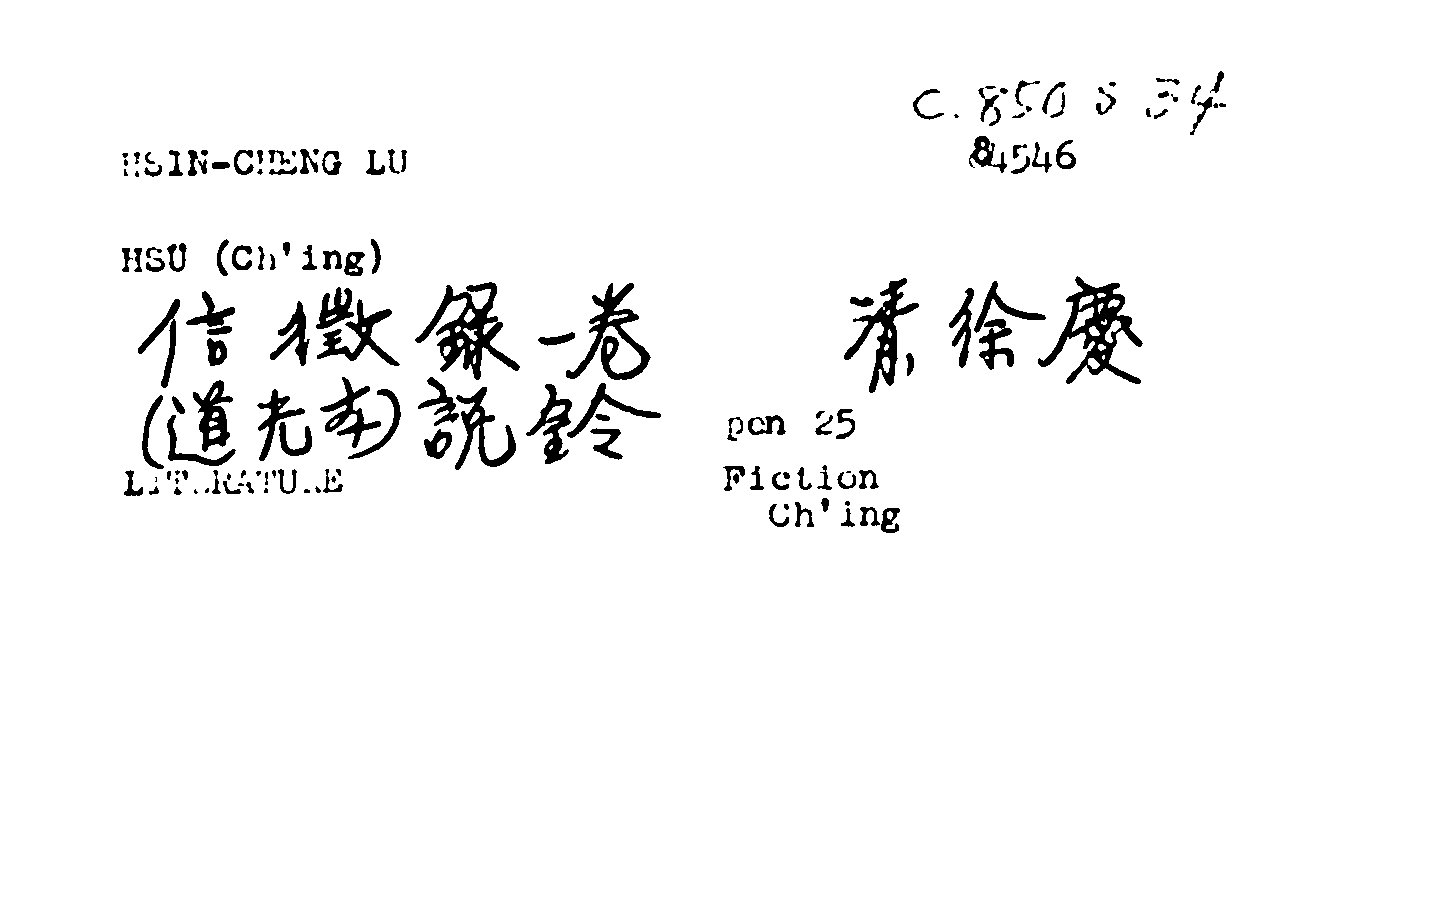 C. 850 S 34
84546
HSIN-CHENG LU
HSU (Ch'ing)
信徵錄一卷 清徐慶
(道光本)說鈴 pen 25
LITERATURE Fiction
Ch'ing